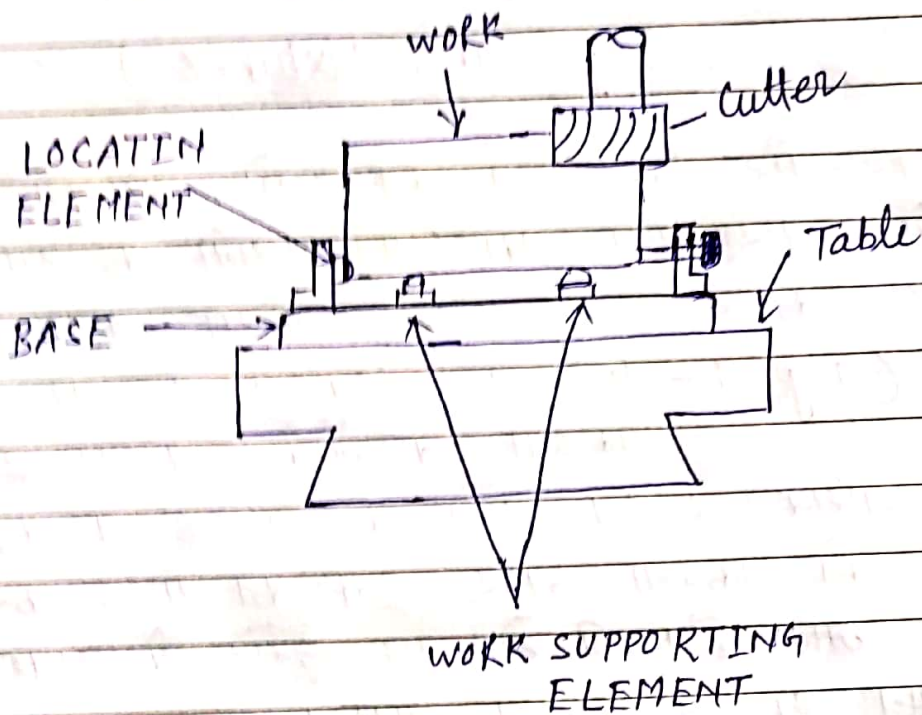 WORK
Cutter
LOCATIN
ELEMENT
Table
BASE
WORK SUPPORTING
ELEMENT